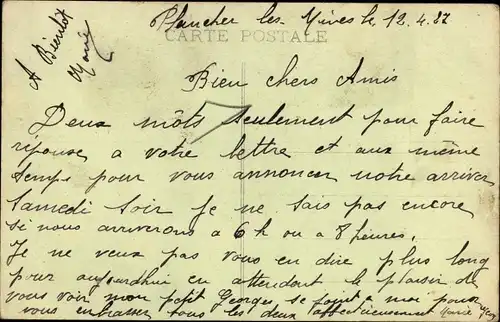 Plancher les Mines le 12.4.37
CARTE POSTALE
A Bientôt
Marie
Bien chers Amis
Deux môts seulement pour faire
réponse a votre lettre et aux même
temps pour vous annoncer notre arriver
Samedi Soir Je ne sais pas encore
si nous arriverons a 6 h ou a 8 heures.
Je ne veux pas vous en dire plus long
pour aujourdhui en attendent le plaisir de
vous voir mon petit Georges se joint a moi pour
vous embrasser tous les deux affectueusement Marie